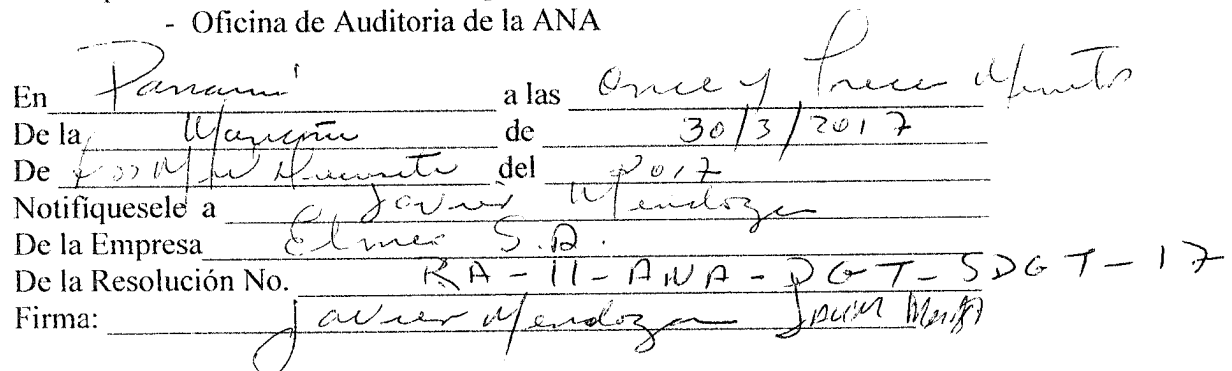 - Oficina de Auditoria de la ANA
En Panamá a las Once y Trece Minutos
De la Mañana de 30/3/2017
De Dos Mil del 2017
Notifíquesele a Javier Mendoza
De la Empresa S.A.
De la Resolución No. RA-11-ANA-DGT-SDGT-17
Firma: Javier Mendoza